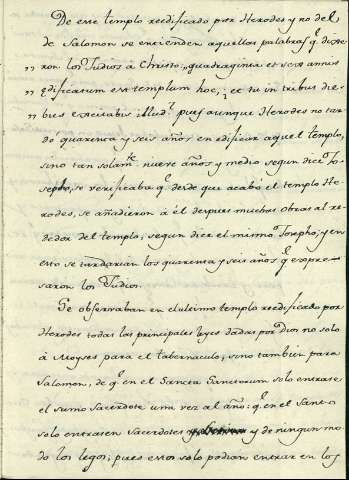 De este templo reedificado por Herodes y no del
de Salomon se entienden aquellas palabras q.e dixe-
ron los Judios à Christo: „quadraginta et sex annus
„ ędificatum est templum hoc, et tu in tribus die-
„ bus excitabis illud? pues aunque Herodes no tar-
dó quarenta y seis años en edificar aquel templo,
sino tan solam.te nueve años y medio segun dice Jo-
sepho, se verificaba q.e desde que acabó el templo He-
rodes, se añadieron à él despues muchas obras al re-
dedor del templo, segun dice el mismo Josepho; y en
esto se tardarian los quarenta y seis años q.e expre-
saron los Judios.
Se observaban en el ultimo templo reedificado por
Herodes todas las principales leyes dadas por Dios no solo
à Moyses para el tabernaculo, sino tambien para
Salomon, de q.e en el Sancta Sanctorum solo entrase
el sumo Sacerdote una vez al año: q.e en el Santo
solo entrasen Sacerdotes y de ningun mo-
do los legos; pues estos solo podian entrar en los